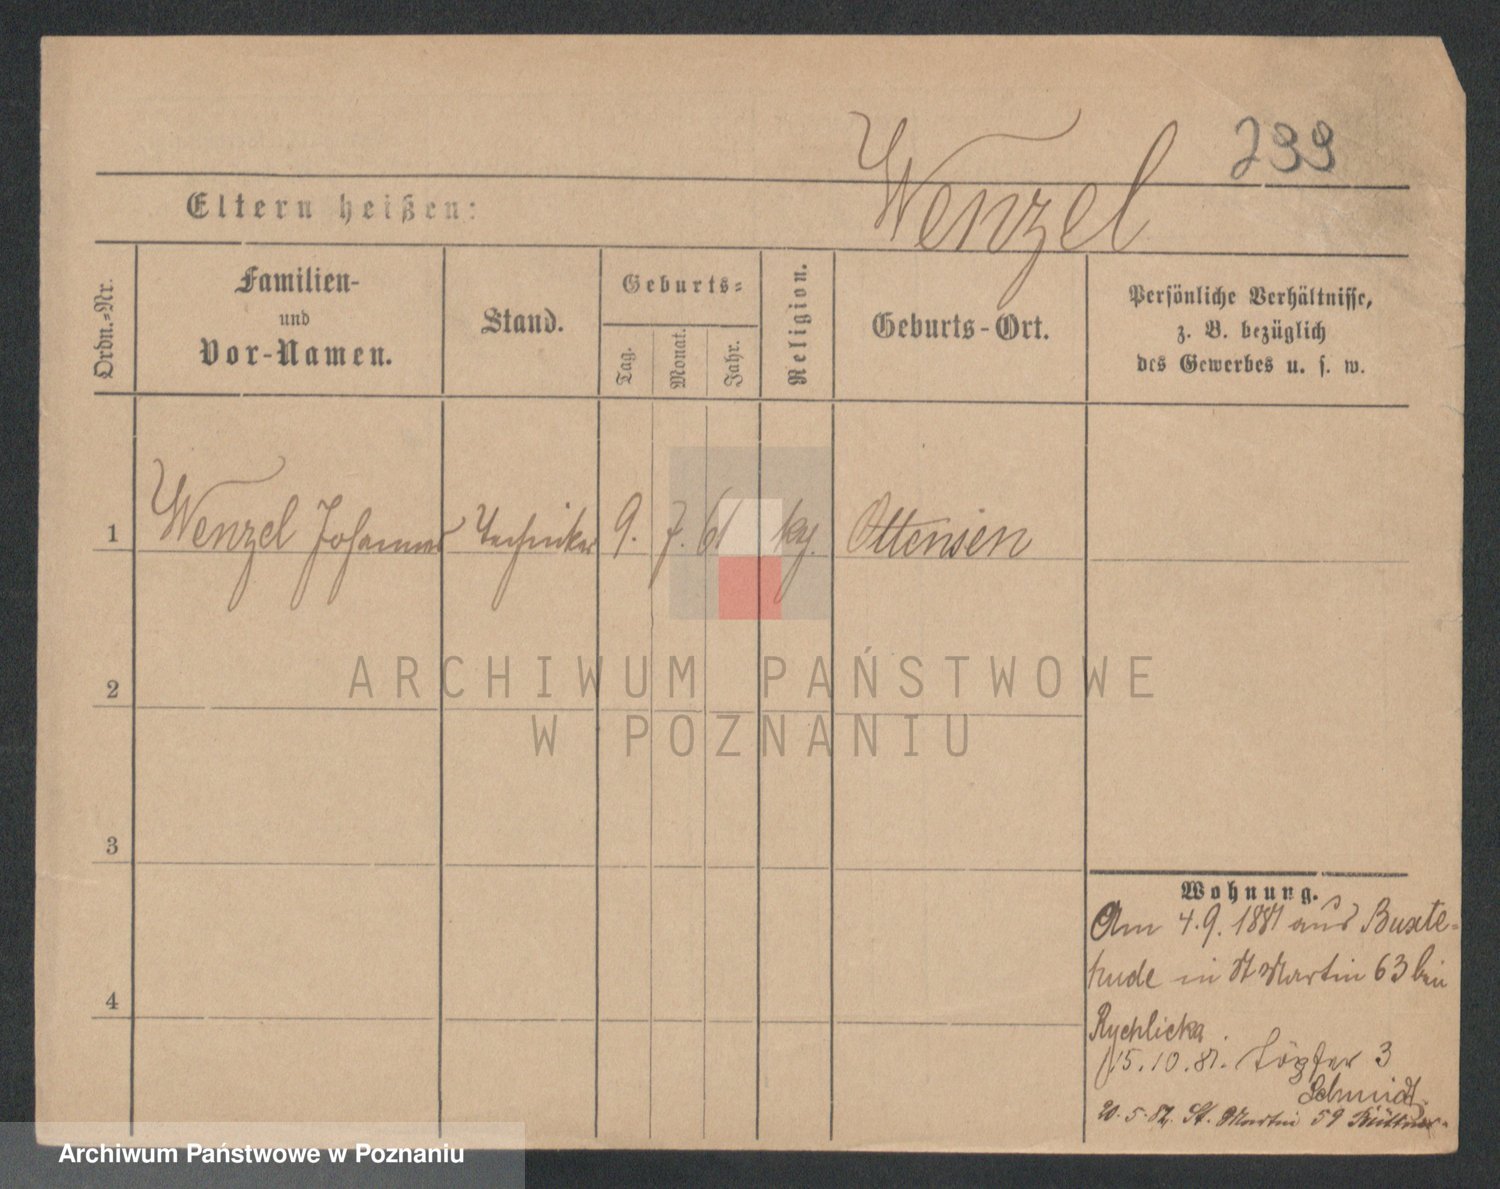 299
Wenzel
Eltern heißen:
Ordn.-Nr.
Familien-
und
Vor-Namen.
Stand.
Geburts-
Tag.
Monat.
Jahr.
Religion.
Geburts-Ort.
Persönliche Verhältnisse,
z. B. bezüglich
des Gewerbes u. s. w.
1 Wenzel Johannes Techniker 9. 7. 61 Ottensen
2
3
4
Wohnung.
Am 4.9.1881 aus Buxte-
hude in St Martin 63 bei
Rychlicka.
15.10.81. Töpfer 3
Schmidt.
20.5.82. St. Martin 59 Büttner
ARCHIWUM PAŃSTWOWE
W POZNANIU
Archiwum Państwowe w Poznaniu